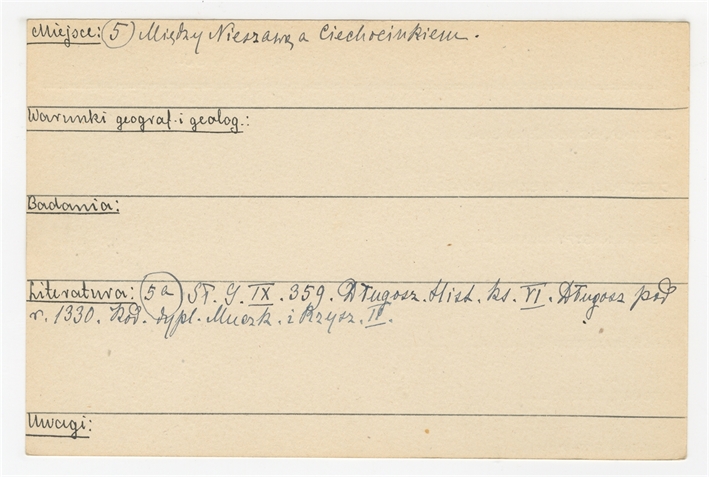 Miejsce: (5) Między Nieszawą a Ciechocinkiem.
Warunki geograf. i geolog.:
Badania:
Literatura: (5a) Sł. G. IX. 359. Długosz. Hist. ks. VI. Długosz pod
r. 1330. Kod. dypl. Muczk. i Rzysz. II.
Uwagi: